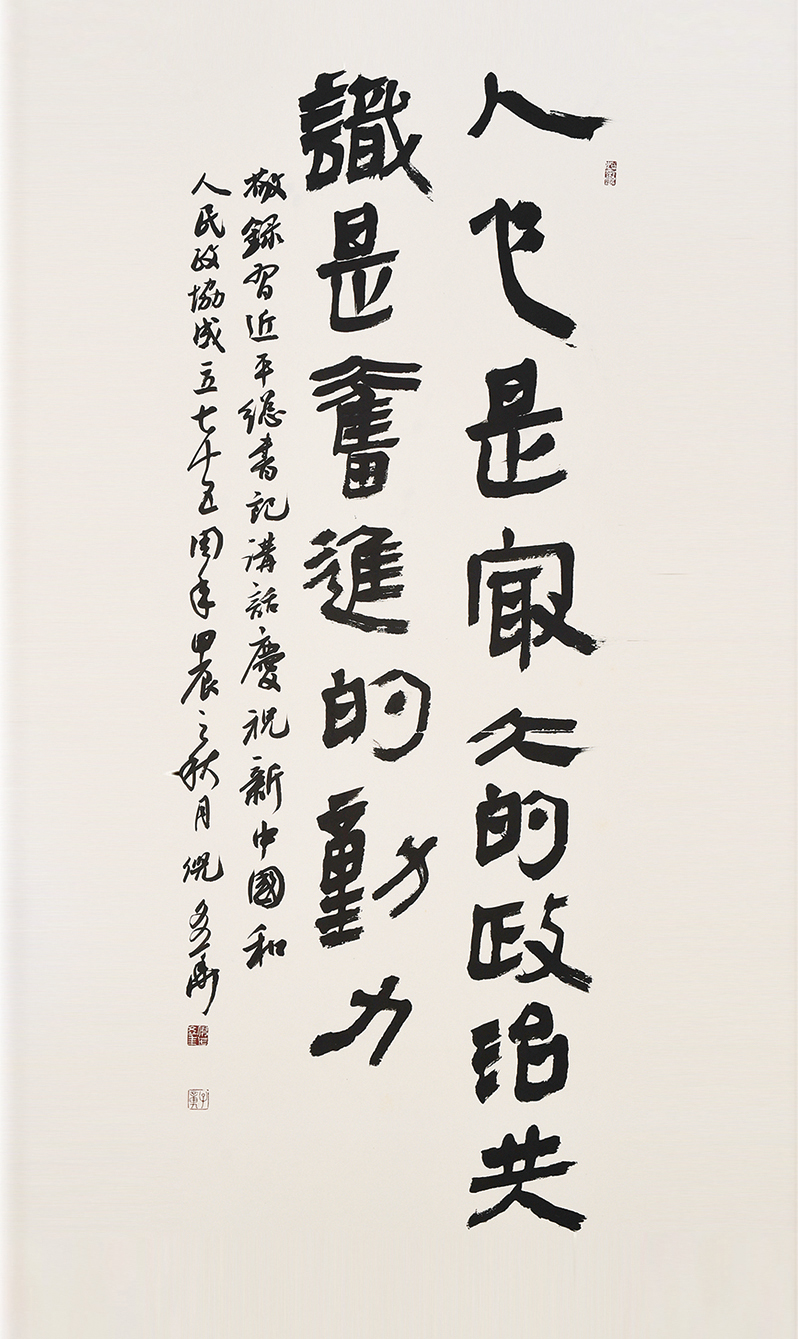 人心是冣大的政治共
識是奮進的動力
敬錄習近平總書記講話慶祝新中國和
人民政協成立七十五周年甲辰之秋月倪